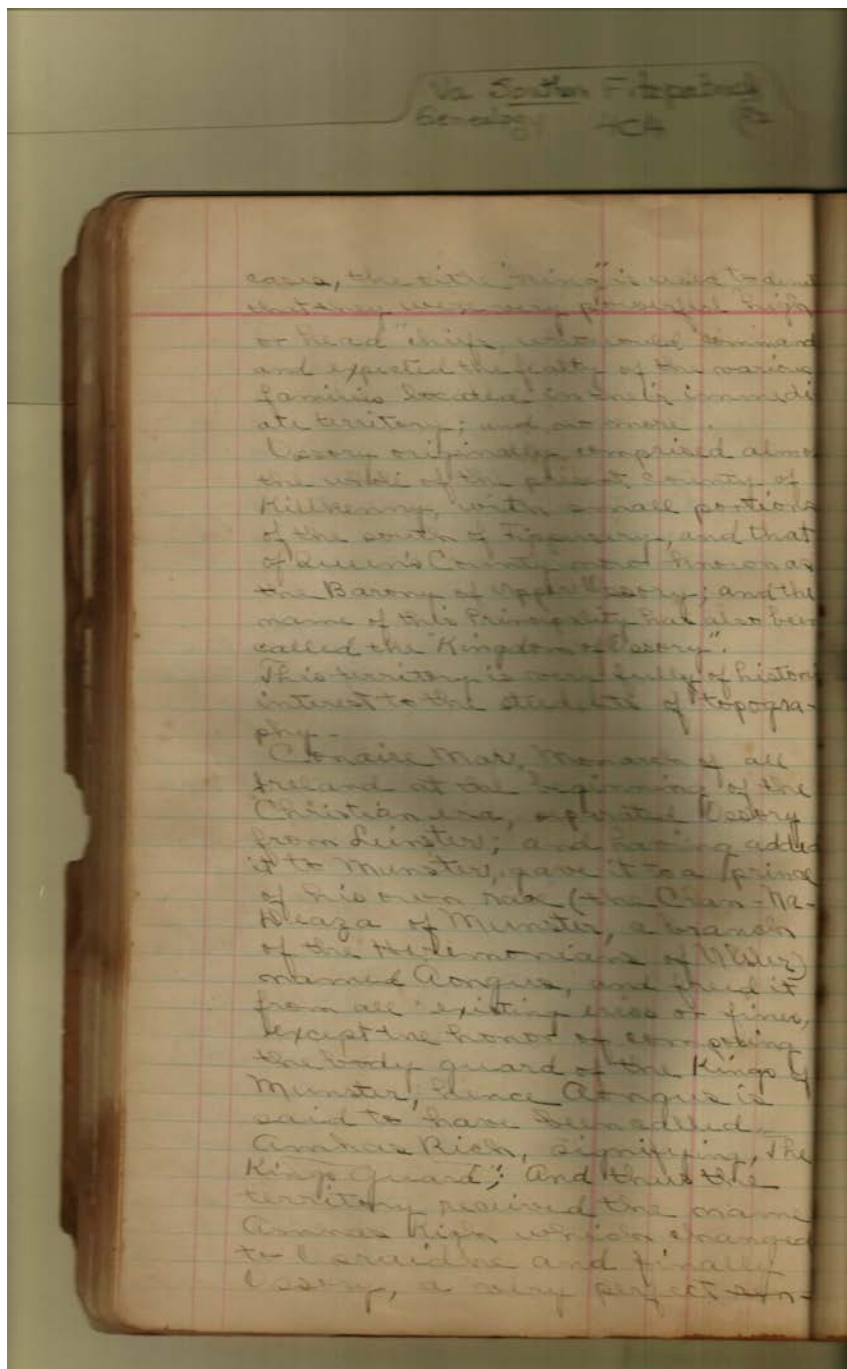 Va Southern Fitzpatrick
Genealogy
cases, the title "King" is used to
that they were very powerful high
or head chiefs, who would command
and expected the fealty of the various
families located in their immedi
ate territory; and no more.
Ossory originally comprised almo
the whole of the present County of
Killkenny, with small portions
of the south of Tipperary, and that
of Queen's County now known as
the Barony of Upper Ossory; and the
name of this Principality has also been
called the "Kingdom of Ossory".
This territory is very fully of histori
interest to the students of topogra-
phy.
Conaire Mar, Monarch of all
Ireland at the beginning of the
Christian era, separated Ossory
from Leinster; and having added
it to Munster, gave it to a prince
of his own race (the Clan-Na-
Deaza of Munster, a branch
of the Heremonians of Ulster)
named Aongus, and freed it
from all existing erics or fines,
except the honor of composing
the body guard of the Kings of
Munster, hence Aongus is
said to have been called
Amhas Righ, signifying, The
King's Guard"; And thus the
territory received the name
Amhas Righ which changed
to and finally
Ossory, a very perfect syn-